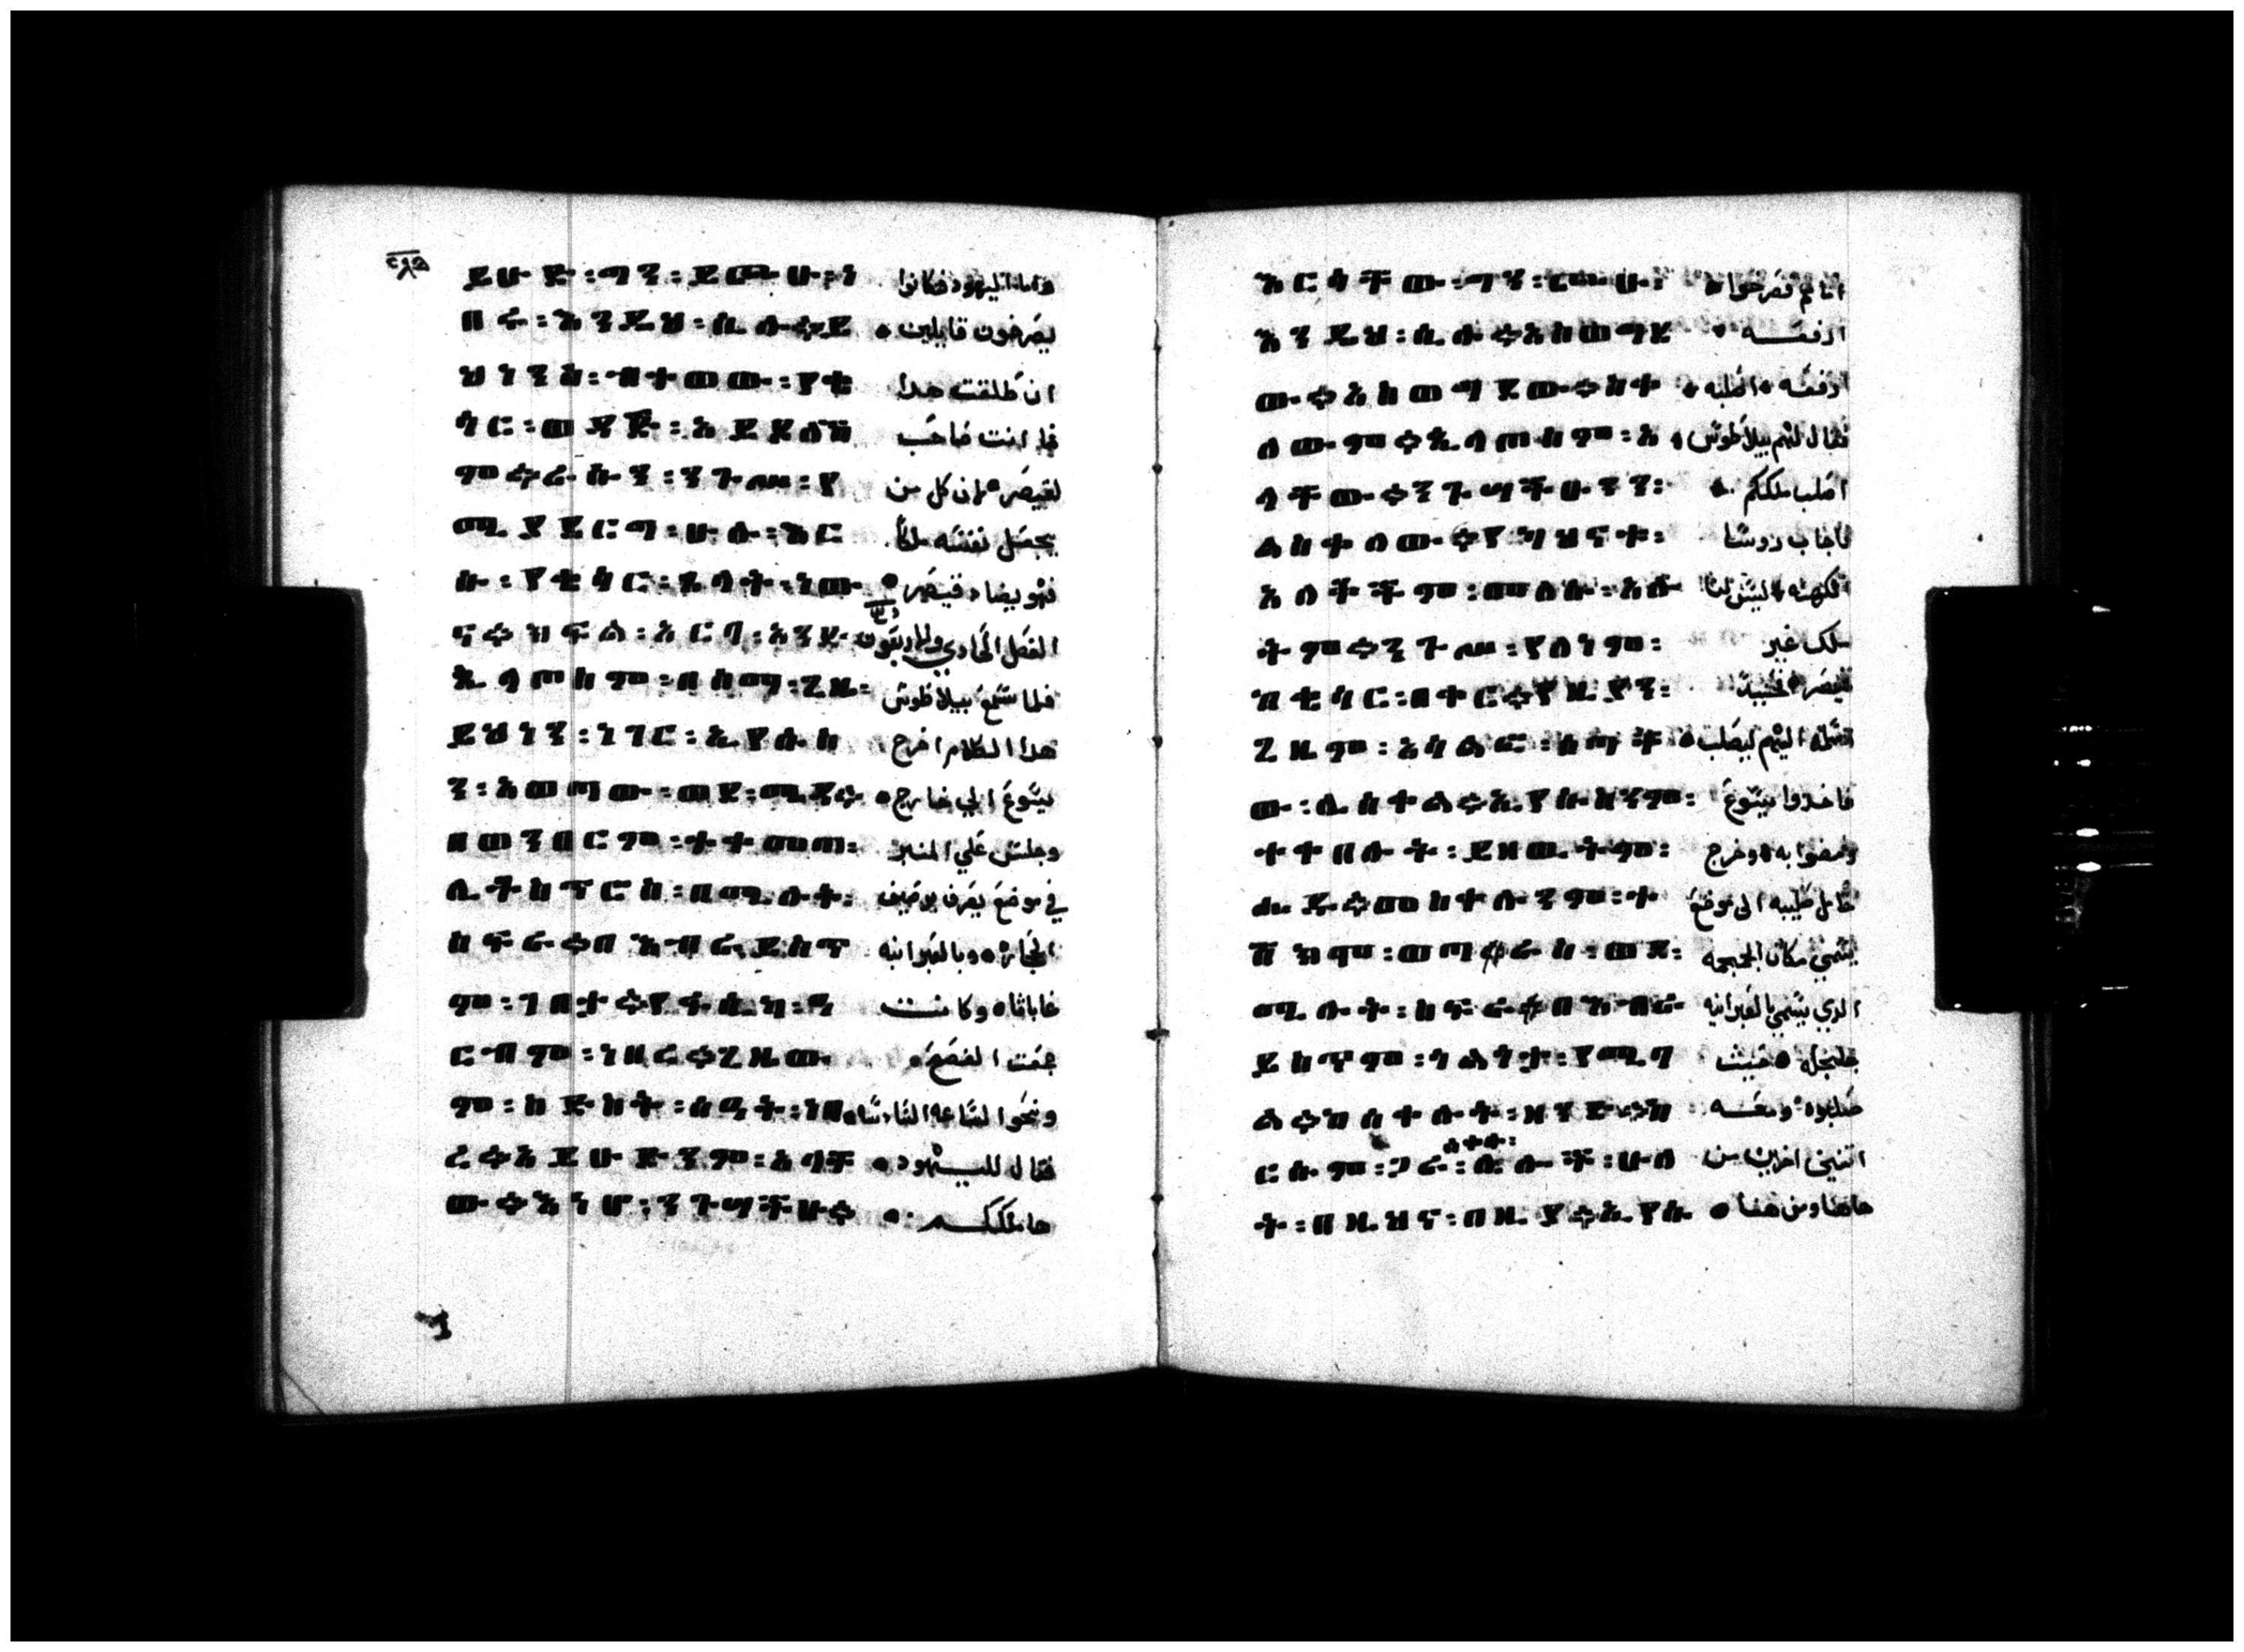 ይሁድ፡ማን፡ይጮሁ፡ነ واما اليهود فكانوا
በሩ፡እንዲህ፡ሲሉ፡ይ يصرخون قايلين
ህነን፡ብተወው፡የቄ ان طلقت هدا
ሳር፡ወዳጅ፡አይደለህ فما انت صاحب
ም፡ሩሱን፡ንጉሥ፡የ لقيصر لان كل من
ሚያደርግ፡ሁሉ፡እር يجعل نفسه ملكا
ሱ፡የቄሳር፡ጴላት፡ነው فهو يضاد قيصر
الفصل الحادي والاربعون
ጲላጦስም፡በሰማ፡ጊዜ፡ فلما سمع بيلاطوس
ይህነን፡ነገር፡ኢየሱስ هدا الكلام اخرج
ን፡አወጣው፡ወደ፡ሜዳ፡ يسوع الي خارج
በወንበርም፡ተቀመጠ፡ وجلس علي المنبر
ሲትከኛርስ፡በሚሉት፡ في موضع يعرف برصيف
ስፍራ፡በዕብራይስጥ الحجاره وبالعبرانيه
ም፡ገበታ፡የፋሲካ፡ማ غاباثا وكانت
ርብም፡ነበረ፡ጊዜው جمعت الفصح
ም፡ስድስት፡ሰዓት፡ነበ ونحو الساعه السادسه
ረ፡አይሁድንም፡አላቸ فقال لليهود
ው፡እነሆ፡ንጉሣችሁ፡ ها ملككم
እርሳቸው፡ማን፡ጮሁ፡ اما هم فصرخوا
እንዲህ፡ሲሉ፡አስወግደ ارفعه
ው፡አስወግደው፡ስቀ ارفعه اصلبه
ለው፡ጲላጦስም፡አ فقال لهم بيلاطوس
ላቸው፡ንጉሣችሁንን፡ اصلب ملككم
ልስቀለው፡የካህናት፡ فاجاب روسا
አለቆችም፡መለሱ፡አሉ الكهنه ليس لنا
ትም፡ንጉሥ፡የለነም፡ ملك غير
ከቄሳር፡በቀር፡የዚያን፡ قيصر
ጊዜም፡አሳልፎ፡ሰጣቸ اليهم ليصلب
ው፡ሊሰቀል፡ኢየሱስንም፡ فاخدوا يسوع
ተቀበሉት፡ይዘውትም፡ ومضوا به وخرج
ሔዱ፡መስቀሉንም፡ተ حامل صليبه الى موضع
ሸክም፡ወጣ፡ራስ፡ወደ፡ يسمي مكان الجمجمه
ሚሉት፡ስፍራ፡በዕብራ الدي يسمي بالعبرانيه
ይስጥም፡ጎልጎታ፡የሚባ جلجله حيث
ል፡ከሰቀሉት፡ዘንድ፡ከ صلبوه ومعه
ርሱም፡ጋራ፡ሰቀሉ፡ሌሎች፡ሁለ اتنين اخرين من
ት፡በዚህና፡በዚያ፡ኢየሱ هاهنا ومن هنا